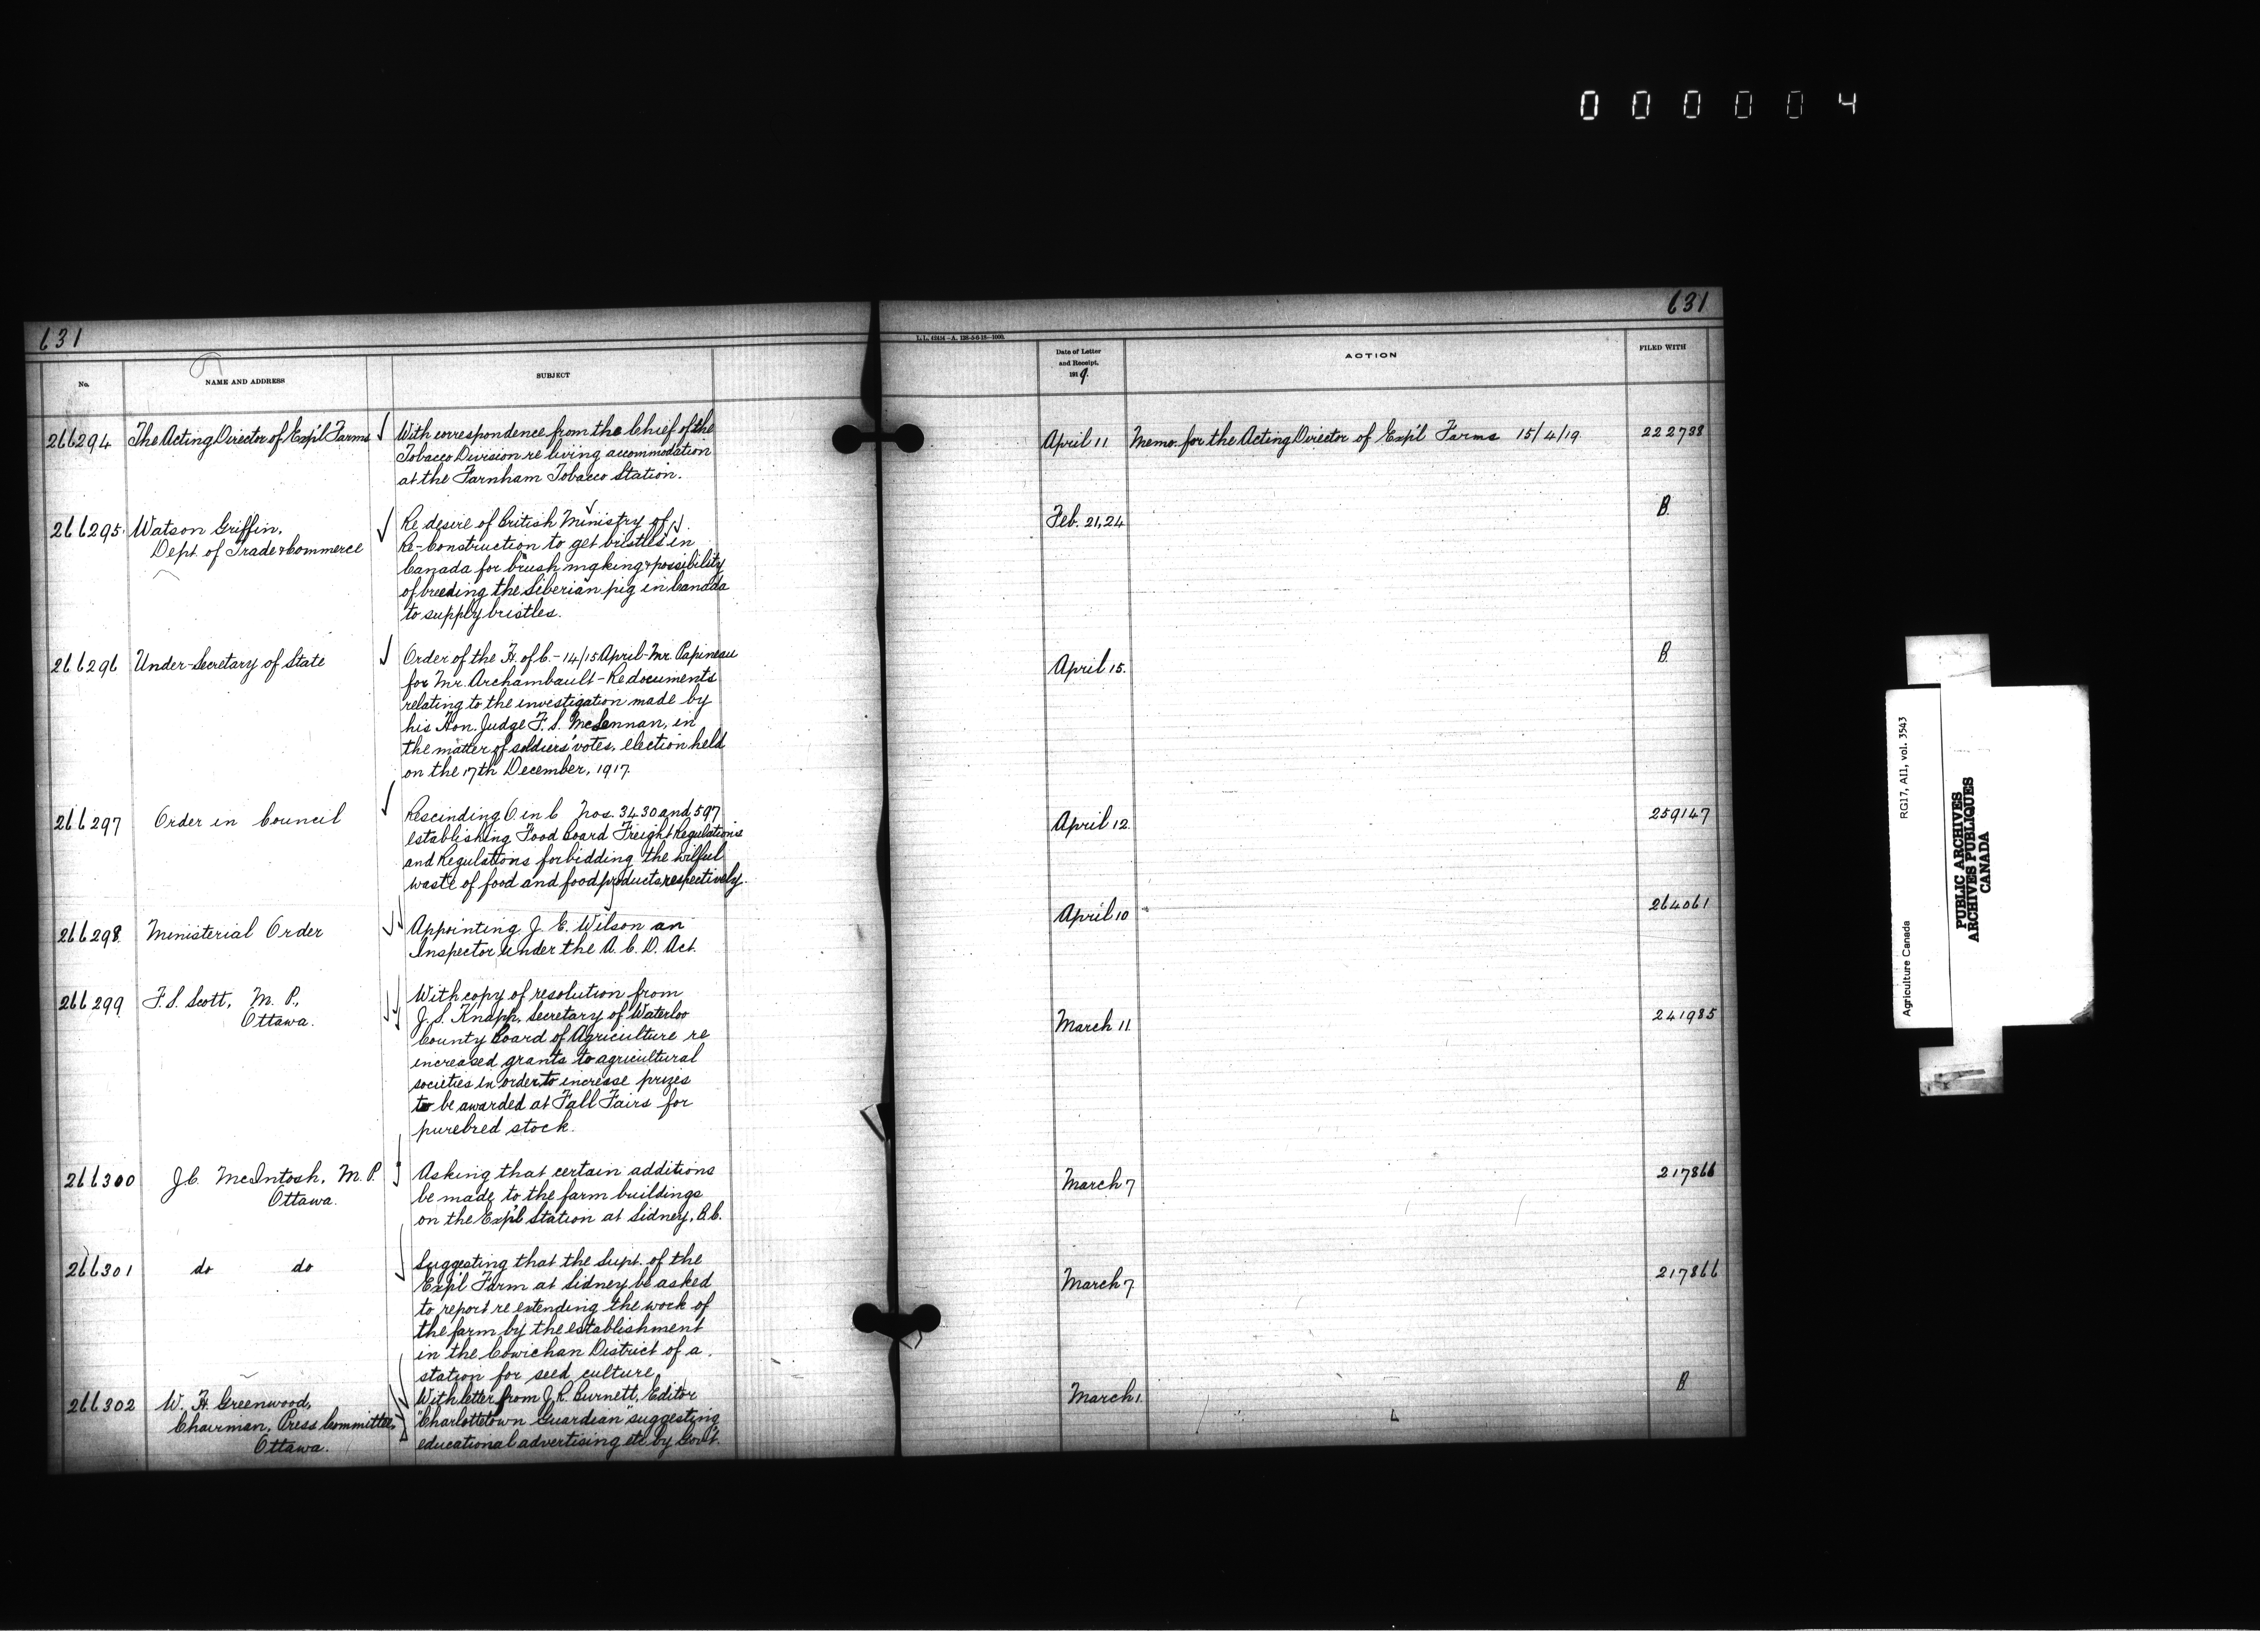 000004
631
631
L.L. 42414-A. 138-5-6-18-1000.
No.
NAME AND ADDRESS
SUBJECT
Date of Letter
and Receipt,
1919.
ACTION
FILED WITH
266294
The Acting Director of Exp'l Farms
With correspondence from the Chief of the
Tobacco Division re living accommodation
at the Farnham Tobacco Station.
April 11
Memo. for the Acting Director of Exp'l Farms 15/4/19.
222738
266295
Watson Griffin,
Dept. of Trade & Commerce
Re desire of British Ministry of
Re-Construction to get bristles in
Canada for brush making & possibility
of breeding the Siberian pig in Canada
to supply bristles.
Feb. 21, 24
B.
266296
Under-Secretary of State
Order of the H. of C. - 14/15 April - Mr. Papineau
for Mr. Archambault - Re documents
relating to the investigation made by
his Hon. Judge F. S. McLennan, in
the matter of soldiers' votes, election held
on the 17th December, 1917.
April 15.
B.
266297
Order in Council
Rescinding O in C Nos. 3430 and 597
establishing Food Board Freight Regulations
and Regulations forbidding the wilful
waste of food and food products respectively.
April 12.
259147
266298
Ministerial Order
Appointing J. E. Wilson an
Inspector under the A. C. D. Act.
April 10
264061
266299
F. S. Scott, M. P.,
Ottawa.
With copy of resolution from
J. S. Knapp, Secretary of Waterloo
County Board of Agriculture re
increased grants to agricultural
societies in order to increase prizes
to be awarded at Fall Fairs for
purebred stock.
March 11.
241985
266300
J.C. McIntosh, M. P.
Ottawa.
Asking that certain additions
be made to the farm buildings
on the Exp'l Station at Sidney, B.C.
March 7
217866
266301
do do
Suggesting that the Supt. of the
Exp'l Farm at Sidney be asked
to report re extending the work of
the farm by the establishment
in the Cowichan District of a
station for seed culture.
March 7.
217866
266302
W. H. Greenwood,
Chairman, Press Committee,
Ottawa.
With letter from J. R. Burnett, Editor
"Charlottetown Guardian" suggesting
educational advertising etc by Gov't.
March 1.
B
Agriculture Canada RG17, AII, vol. 3543
PUBLIC ARCHIVES
ARCHIVES PUBLIQUES
CANADA